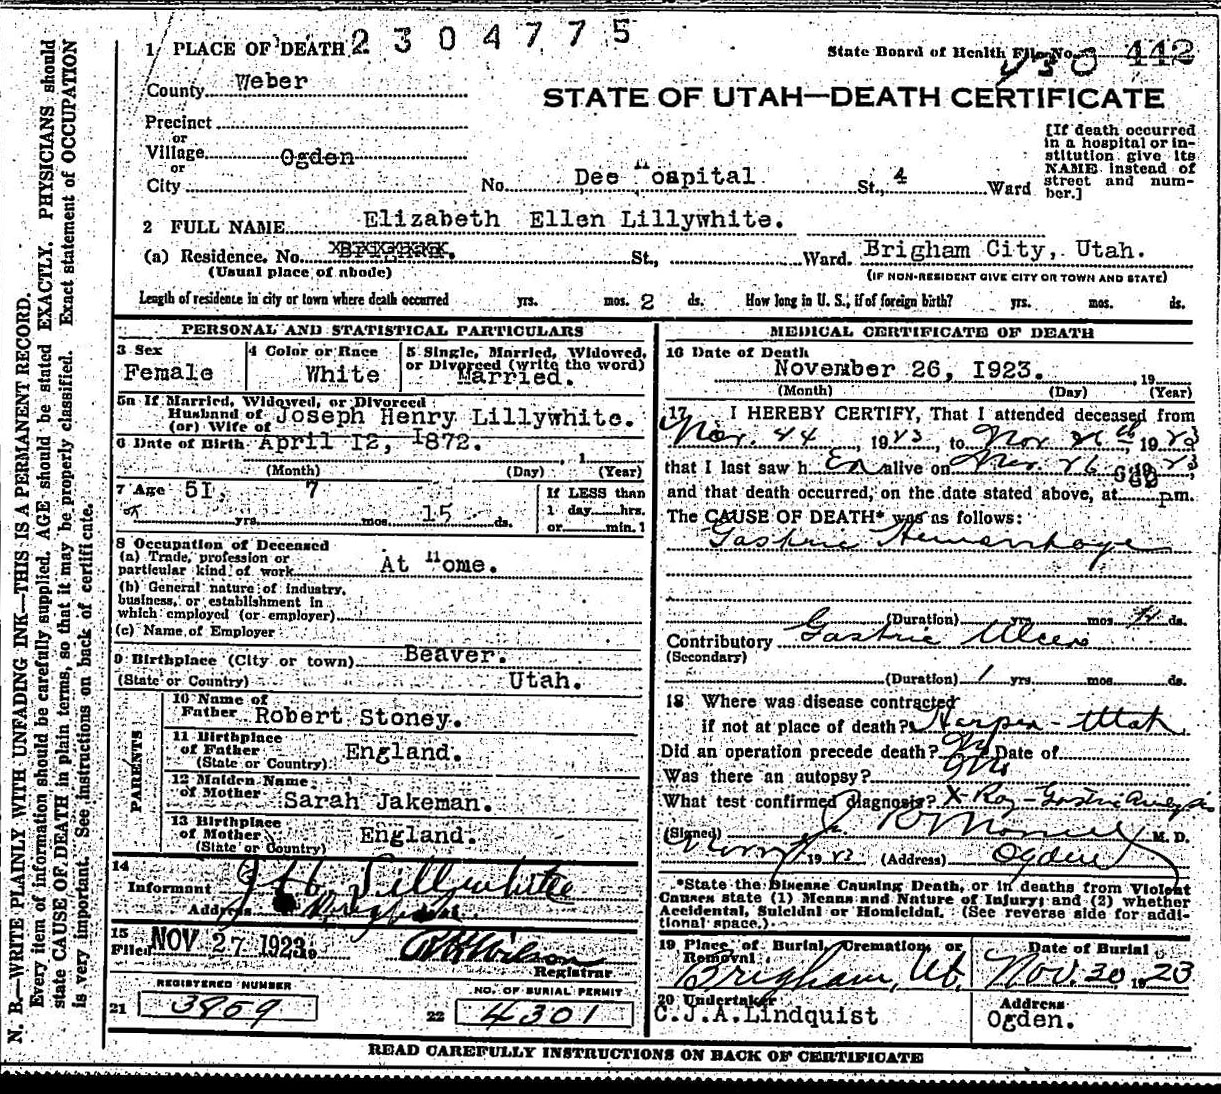 N. B.—WRITE PLAINLY WITH UNFADING INK—THIS IS A PERMANENT RECORD.
Every item of information should be carefully supplied. AGE should be stated EXACTLY. PHYSICIANS should
state CAUSE OF DEATH in plain terms, so that it may be properly classified. Exact statement of OCCUPATION
is very important. See instructions on back of certificate.
1 PLACE OF DEATH 2304775
State Board of Health File No. 442
County Weber
STATE OF UTAH—DEATH CERTIFICATE
Precinct
or
Village Ogden
or
City
No. Dee Hospital St., 4 Ward
[If death occurred
in a hospital or in-
stitution give its
NAME instead of
street and num-
ber.]
2 FULL NAME Elizabeth Ellen Lillywhite.
(a) Residence. No. St., Ward. Brigham City, Utah.
(Usual place of abode) (IF NON-RESIDENT GIVE CITY OR TOWN AND STATE)
Length of residence in city or town where death occurred yrs. mos. 2 ds. How long in U. S., if of foreign birth? yrs. mos. ds.
PERSONAL AND STATISTICAL PARTICULARS
3 Sex
Female
4 Color or Race
White
5 Single, Married, Widowed,
or Divorced (write the word)
Married.
5a If Married, Widowed, or Divorced
Husband of
(or) Wife of Joseph Henry Lillywhite.
6 Date of Birth April I2, I872. , 1
(Month) (Day) (Year)
7 Age 5I, 7
yrs. mos. 15 ds.
If LESS than
1 day hrs.
or min.
8 Occupation of Deceased
(a) Trade, profession or
particular kind of work At Home.
(b) General nature of industry,
business, or establishment in
which employed (or employer)
(c) Name of Employer
9 Birthplace (City or town) Beaver.
(State or Country) Utah.
PARENTS
10 Name of
Father Robert Stoney.
11 Birthplace
of Father England.
(State or Country)
12 Maiden Name
of Mother Sarah Jakeman.
13 Birthplace
of Mother England.
(State or Country)
14
Informant Lillywhite
Address
15
Filed NOV 27 1923 19
Wilson
Registrar
REGISTERED NUMBER
21 3859
NO. OF BURIAL PERMIT
22 4301
MEDICAL CERTIFICATE OF DEATH
16 Date of Death
November 26, I923. , 19
(Month) (Day) (Year)
17 I HEREBY CERTIFY, That I attended deceased from
Nov. 1923, to Nov 26th, 1923
that I last saw her alive on Nov. 26 1923,
and that death occurred, on the date stated above, at p.m.
The CAUSE OF DEATH* was as follows:
Gastric Hemorrhage
(Duration) yrs. mos. 14 ds.
Contributory Gastric Ulcer
(Secondary)
(Duration) 1 yrs. mos. ds.
18 Where was disease contracted
if not at place of death? Harper - Utah
Did an operation precede death? No Date of
Was there an autopsy? No
What test confirmed diagnosis? X Ray - Gastric Analysis
(Signed) M. D.
1923 (Address) Ogden
*State the Disease Causing Death, or in deaths from Violent
Causes state (1) Means and Nature of Injury; and (2) whether
Accidental, Suicidal or Homicidal. (See reverse side for addi-
tional space.)
19 Place of Burial, Cremation or
Removal
Brigham, Ut.
Date of Burial
Nov. 30 1923
20 Undertaker
C.J.A.Lindquist
Address
Ogden.
READ CAREFULLY INSTRUCTIONS ON BACK OF CERTIFICATE